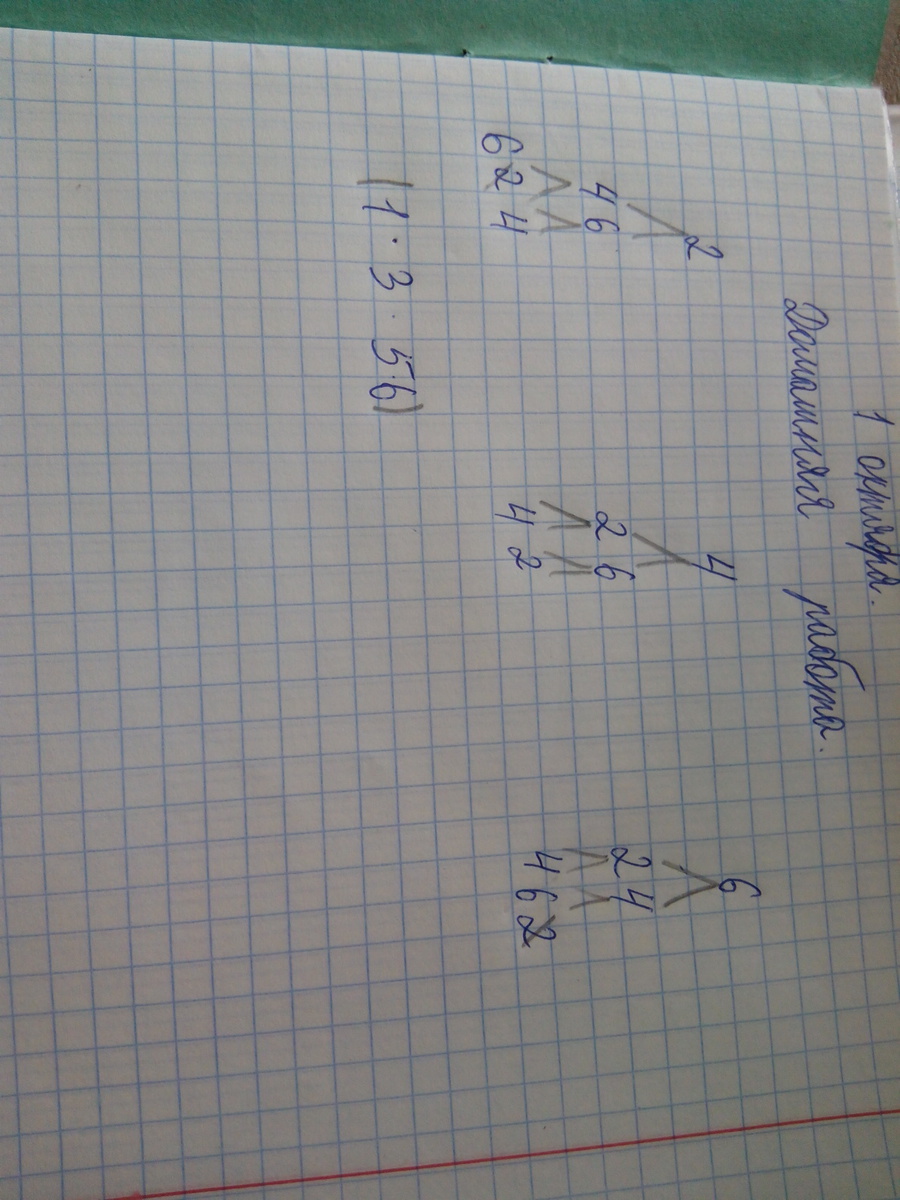 1 октября.
Домашняя работа.
2 4 6
4 6 2 6 2 4
6 2 4 4 2 4 6 2
(1 · 3 · 56)